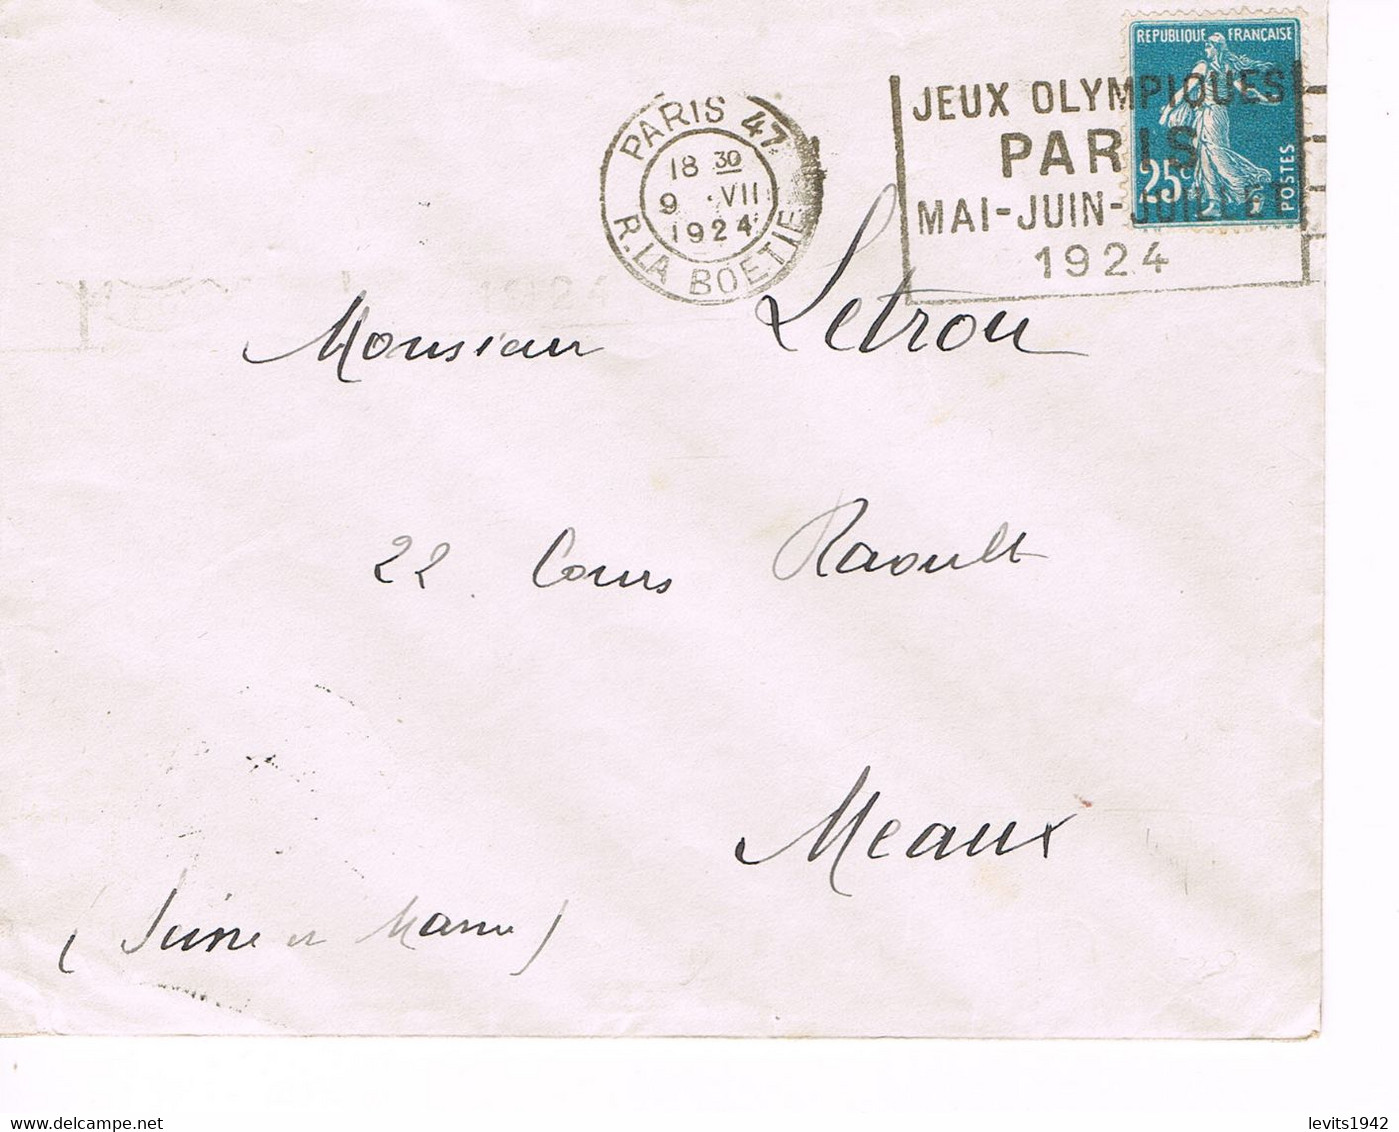 REPUBLIQUE FRANÇAISE
25c
POSTES
JEUX OLYMPIQUES
PARIS
MAI-JUIN-JUILLET
1924
PARIS 47
18 30
9 VII
1924
R. LA BOETIE
1924
Monsieur Letrou
22 Cours Raoult
Meaux
(Seine et Marne)
levits1942